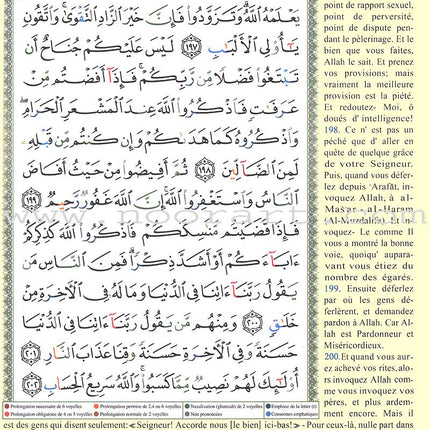 يَعْلَمْهُ ٱللَّهُ وَتَزَوَّدُوا۟ فَإِنَّ خَيْرَ ٱلزَّادِ ٱلتَّقْوَىٰ وَٱتَّقُونِ
يَـٰٓأُو۟لِى ٱلْأَلْبَـٰبِ ١٩٧ لَيْسَ عَلَيْكُمْ جُنَاحٌ أَن
تَبْتَغُوا۟ فَضْلًا مِّن رَّبِّكُمْ فَإِذَآ أَفَضْتُم مِّنْ
عَرَفَـٰتٍ فَٱذْكُرُوا۟ ٱللَّهَ عِندَ ٱلْمَشْعَرِ ٱلْحَرَامِ
وَٱذْكُرُوهُ كَمَا هَدَىٰكُمْ وَإِن كُنتُم مِّن قَبْلِهِۦ
لَمِنَ ٱلضَّآلِّينَ ١٩٨ ثُمَّ أَفِيضُوا۟ مِنْ حَيْثُ أَفَاضَ
ٱلنَّاسُ وَٱسْتَغْفِرُوا۟ ٱللَّهَ إِنَّ ٱللَّهَ غَفُورٌ رَّحِيمٌ ١٩٩
فَإِذَا قَضَيْتُم مَّنَـٰسِكَكُمْ فَٱذْكُرُوا۟ ٱللَّهَ كَذِكْرِكُمْ
ءَابَآءَكُمْ أَوْ أَشَدَّ ذِكْرًا فَمِنَ ٱلنَّاسِ مَن
يَقُولُ رَبَّنَآ ءَاتِنَا فِى ٱلدُّنْيَا وَمَا لَهُۥ فِى ٱلْـَٔاخِرَةِ مِنْ
خَلَـٰقٍ ٢٠٠ وَمِنْهُم مَّن يَقُولُ رَبَّنَآ ءَاتِنَا فِى ٱلدُّنْيَا
حَسَنَةً وَفِى ٱلْـَٔاخِرَةِ حَسَنَةً وَقِنَا عَذَابَ ٱلنَّارِ ٢٠١
أُو۟لَـٰٓئِكَ لَهُمْ نَصِيبٌ مِّمَّا كَسَبُوا۟ وَٱللَّهُ سَرِيعُ ٱلْحِسَابِ ٢٠٢
point de rapport sexuel,
point de perversité,
point de dispute pen-
dant le pèlerinage. Et le
bien que vous faites,
Allah le sait. Et prenez
vos provisions; mais
vraiment la meilleure
provision est la piété.
Et redoutez- Moi, ô
doués d' intelligence!
198. Ce n' est pas un
péché que d' aller en
quête de quelque grâce
de votre Seigneur.
Puis, quand vous défer-
lez depuis 'Arafât, in-
voquez Allah, à al-
Maš'ar al-Haram
(Al-Muzdalifa). Et in-
voquez- Le comme Il
vous a montré la bonne
voie, quoiqu' aupara-
vant vous étiez du
nombre des égarés.
199. Ensuite déferlez
par où les gens dé-
ferlèrent, et demandez
pardon à Allah. Car Al-
lah est Pardonneur et
Miséricordieux.
200.Et quand vous aur-
ez achevé vos rites, alo-
rs invoquez Allah com-
me vous invoquez vos
pères, et plus ardem-
ment encore. Mais il
Prolongation nécessaire de 6 voyelles Prolongation permise de 2,4 ou 6 voyelles Nasalisation (ghunnah) de 2 voyelles Emphase de la lettre (r)
Prolongation obligatoire de 4 ou 5 voyelles Prolongation normale de 2 voyelles Non prononcées Consonnes emphatiques
est des gens qui disent seulement:≪Seigneur! Accorde nous [le bien] ici-bas!≫ - Pour ceux-là, nulle part dans